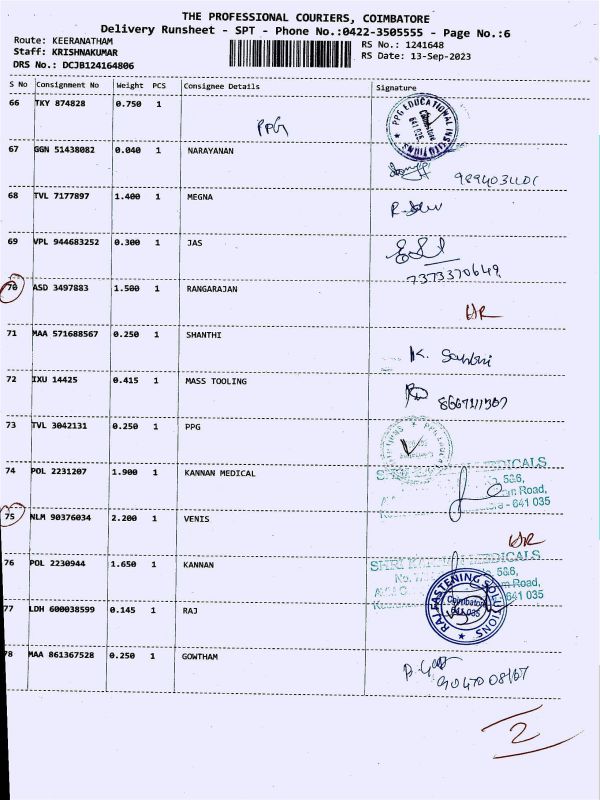 THE PROFESSIONAL COURIERS, COIMBATORE
Delivery Runsheet - SPT - Phone No.:0422-3505555 - Page No.:6
Route: KEERANATHAM
Staff: KRISHNAKUMAR
DRS No.: DCJB124164806
RS No.: 1241648
RS Date: 13-Sep-2023
S No Consignment No Weight PCS Consignee Details Signature
66 TKY 874828 0.750 1 PPG
PPG EDUCATIONAL INSTITUTIONS
Coimbatore
641 035
67 GGN 51438082 0.040 1 NARAYANAN
68 TVL 7177897 1.400 1 MEGNA
69 VPL 944683252 0.300 1 JAS
7373370649
70 ASD 3497883 1.500 1 RANGARAJAN
71 MAA 571688567 0.250 1 SHANTHI
K.
72 IXU 14425 0.415 1 MASS TOOLING
73 TVL 3042131 0.250 1 PPG
74 POL 2231207 1.900 1 KANNAN MEDICAL
MEDICALS
5&6,
Road,
- 641 035
75 NLM 90376034 2.200 1 VENIS
76 POL 2230944 1.650 1 KANNAN
SHRI KANNAN MEDICALS
No. 5&6,
Road,
641 035
77 LDH 600038599 0.145 1 RAJ
RAJ FASTENING SOLUTIONS
Coimbatore
641 035
78 MAA 861367528 0.250 1 GOWTHAM
2